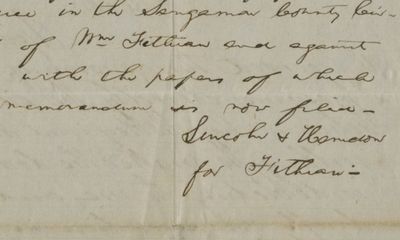 in the Sangamon County Cir-
of Wm Fithian and against
with the papers of which
memorandum is now filed -
Lincoln & Herndon
for Fithian -